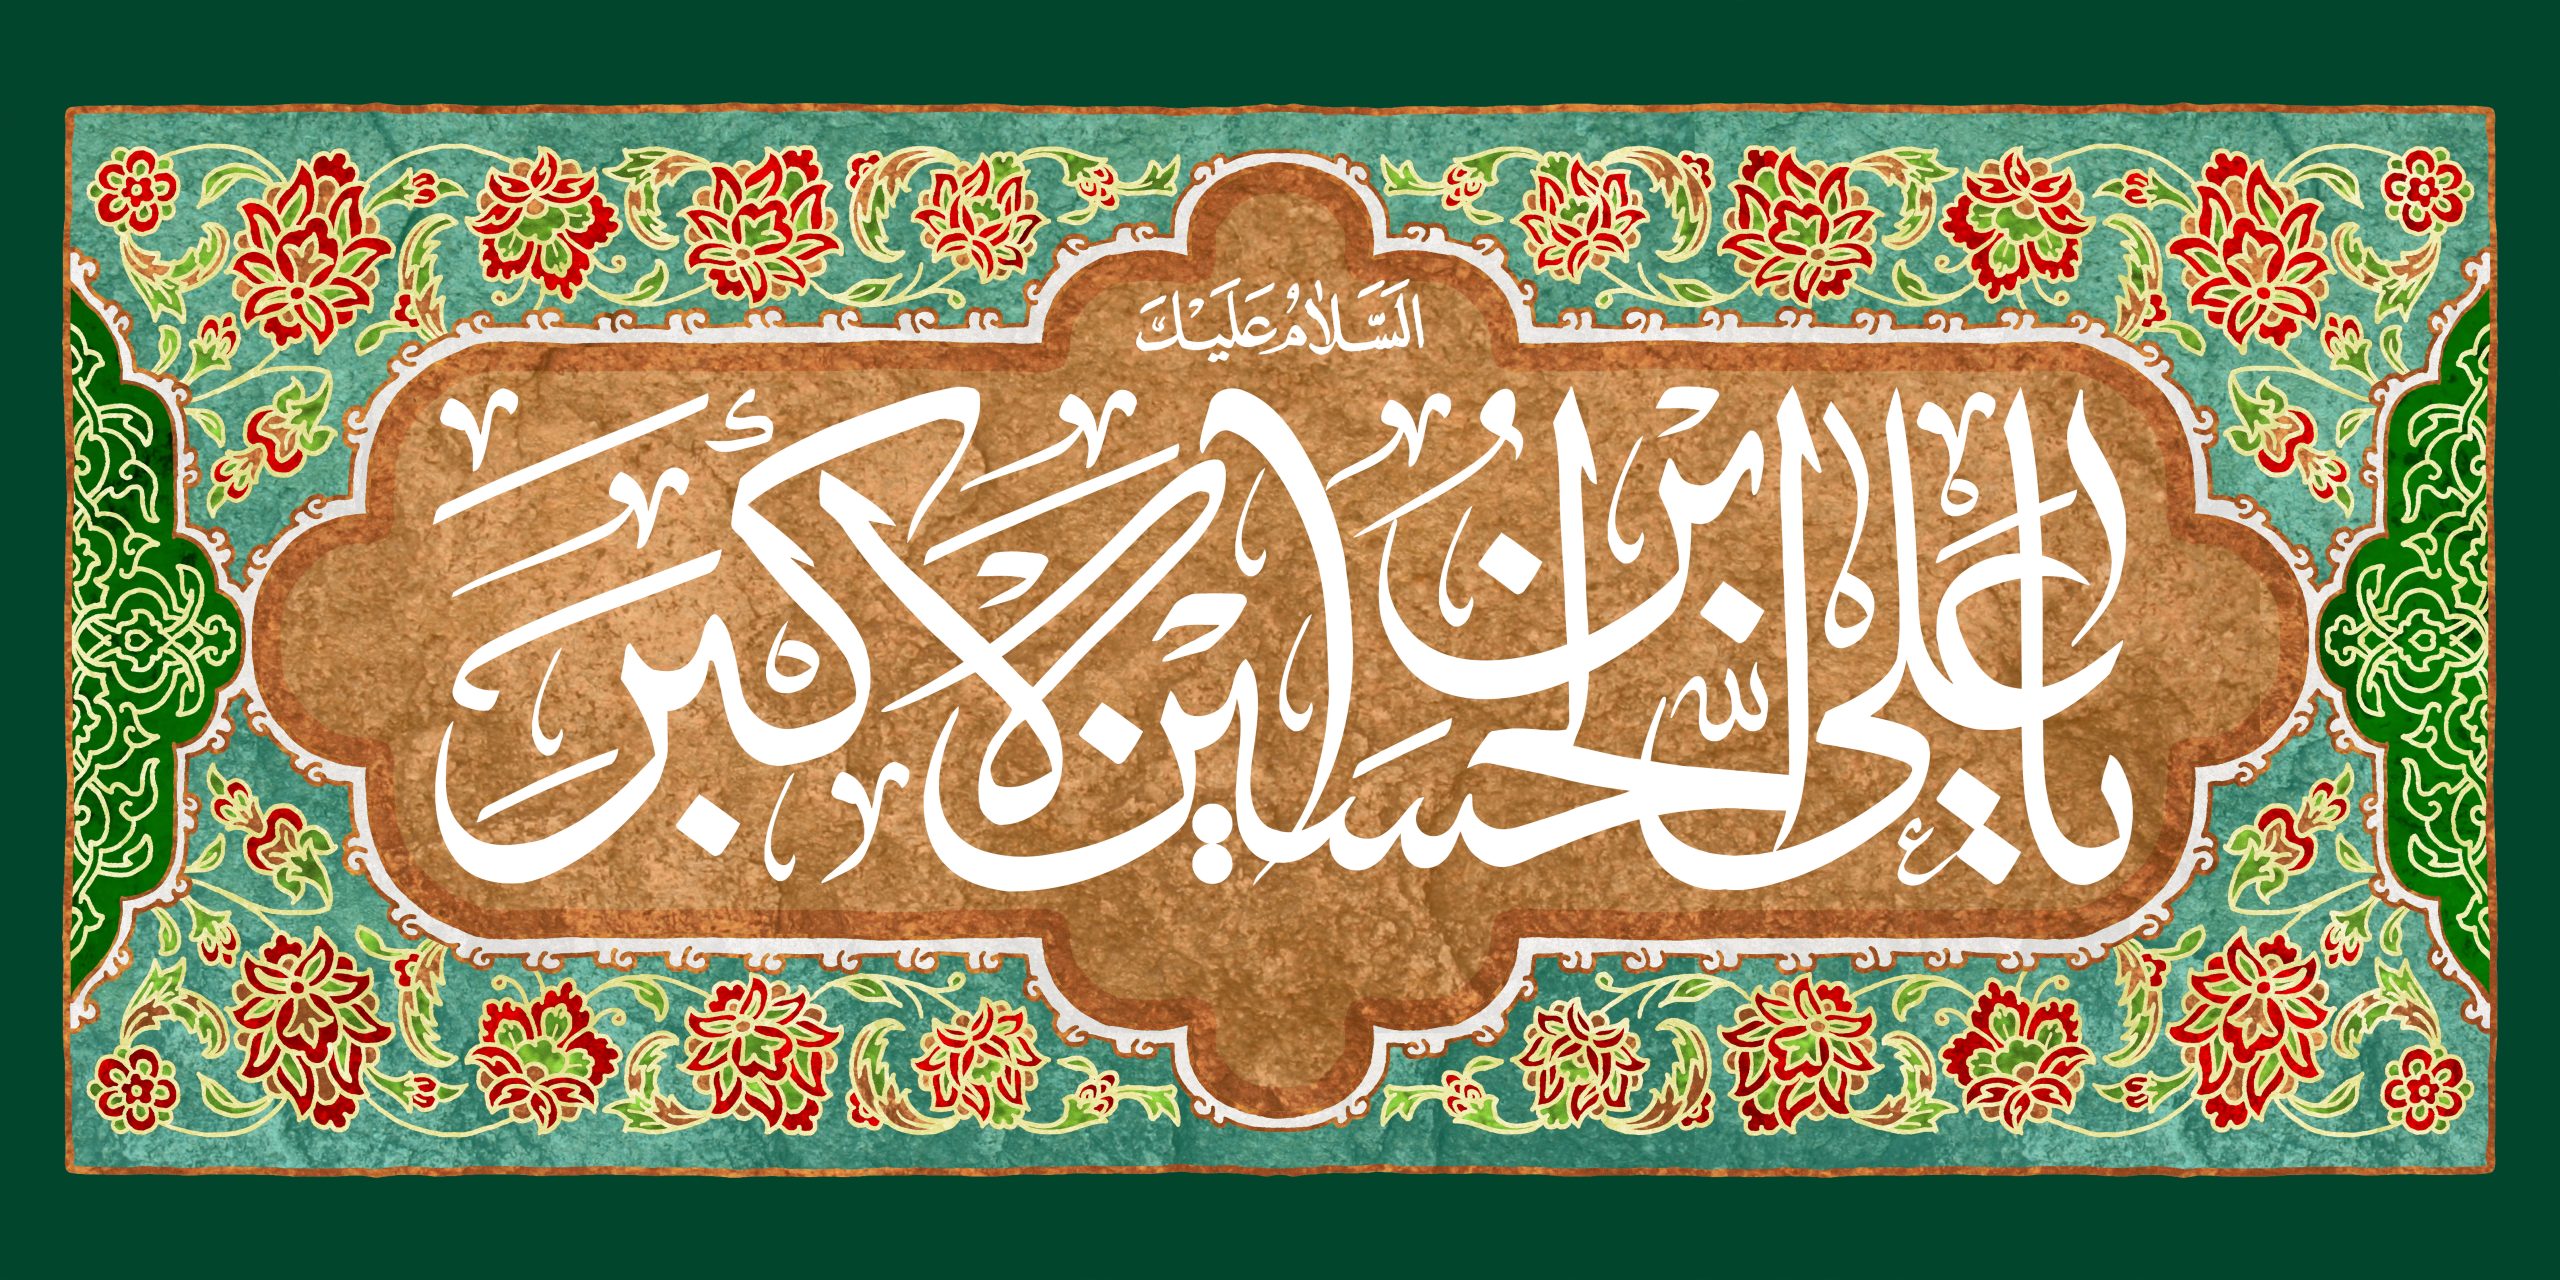 اَلسَّلامُ عَلَیْكَ
یا عَلیَّ بْنَ الْحُسَیْنِ الْاَکْبَرَ